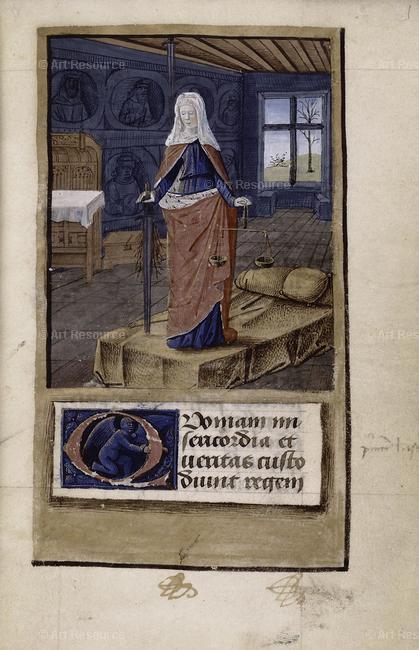 © Art Resource
© Art Resource
© Art Resource
© Art Resource
© Art Resource
© Art Resource
Quoniam mi
sericordia et
ueritas custo
diunt regem
© Art Resource
© Art Resource
© Art Resource